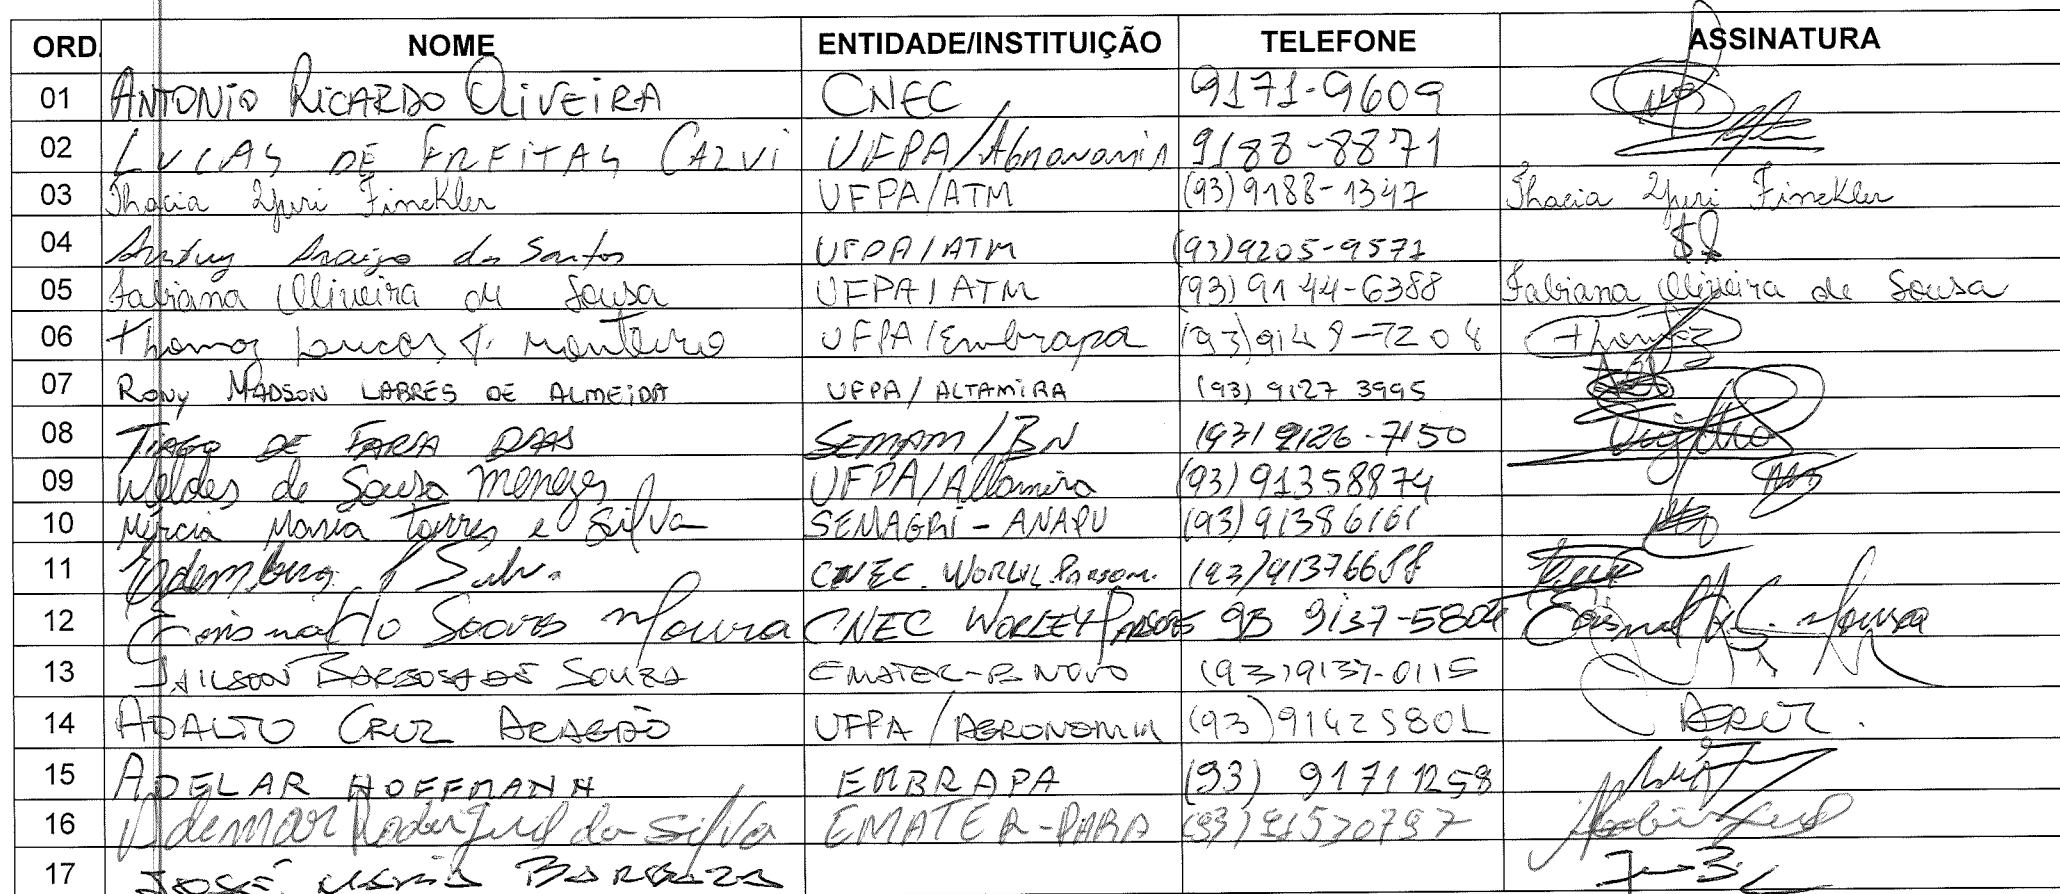 ORD. NOME ENTIDADE/INSTITUIÇÃO TELEFONE ASSINATURA
01 ANTONIO RICARDO OLIVEIRA CNEC 9171-9609
02 LUCAS DE FREITAS CALVI UFPA/Agronomia 9188-8871
03 Thacia Yuri Finckler UFPA/ATM (93) 9188-1347 Thacia Yuri Finckler
04 Araújo dos Santos UFPA/ATM (93) 9205-9571
05 Fabiana Oliveira de Sousa UFPA/ATM (93) 9144-6388 Fabiana Oliveira de Sousa
06 Thomaz Lucas F. Monteiro UFPA/Embrapa (93) 9149-7204 Thomaz
07 RONY MADSON LABRES DE ALMEIDA UFPA/ALTAMIRA (93) 9127 3995
08 TIAGO DE FARIA DIAS SEMAM/BN (93) 9126-7150
09 Weldes de Sousa Menezes UFPA/Altamira (93) 91358874
10 Mércia Maria Torres e Silva SEMAGRI-ANAPU (93) 91386161
11 CNEC. WORLEY PARSON. (93) 91376688
12 Soares Moura CNEC WORLEYPARSONS 93 9137-5804 Moura
13 JAILSON BARBOSA DE SOUZA EMATER-B NOVO (93) 9137-0115
14 ADALTO CRUZ ARAGÃO UFPA/AGRONOMIA (93) 91425801
15 ADELAR HOFFMANN EMBRAPA (93) 91711258
16 Rodrigues da Silva EMATER-PARÁ (93) 91530797
17 JOSÉ MARIA